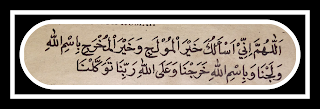 اَللّٰهُمَّ اِنِّيْ اَسْاَلُكَ خَيْرَ الْمَوْلَجِ وَخَيْرَ الْمَخْرَجِ بِاسْمِ اللهِ
وَلَجْنَا وَبِاسْمِ اللهِ خَرَجْنَا وَعَلَى اللهِ رَبِّنَا تَوَكَّلْنَا